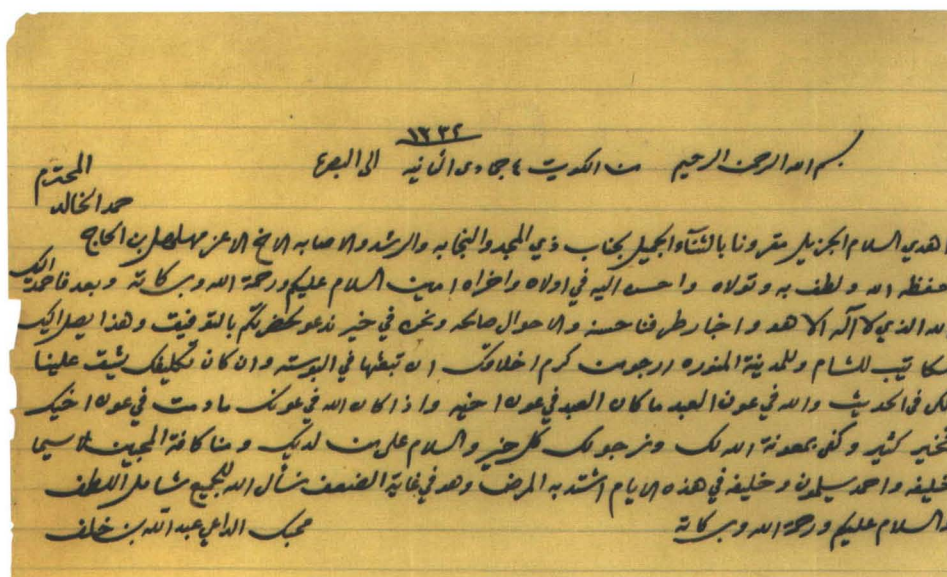 ١٣٣٢
بسم الله الرحمن الرحيم من الكويت ٤ جمادى الثانيه الى البصرة
المحترم
حمد الخالد
اهدي السلام الجزيل مقرونا بالثناء الجميل لجناب ذي المجد والنجابه والرشد والاصابه الاخ الاعز مهلهل بن الحاج
حفظه الله ولطف به وتولاه واحسن اليه في اولاه واخراه امين السلام عليكم ورحمة الله وبركاته وبعد فاحمد اليك
الله الذي لا اله الا هو واخبار طرفنا حسنه والاحوال صالحه ونحن في خير ندعو لحضرتكم بالتوفيق وهذا يصل اليك
مكاتيب للشام وللمدينة المنوره ارجو من كرم اخلاقك ان تبعثها في البوسته وان كان تكليفك يشق علينا
لكن في الحديث والله في عون العبد ما كان العبد في عون اخيه واذا كان الله في عونك ما دمت في عون اخيك
فخير كثير وكفى بمعونة الله لك ونرجو لك كل خير والسلام على من لديك ومنا كافة المحبين لاسيما
خليفه واحمد سيلمون وخليفه في هذه الايام اشتد به المرض وهو في غاية الضعف نسأل الله للجميع شامل اللطف
والسلام عليكم ورحمة الله وبركاته محبك الداعي عبد الله بن خلف